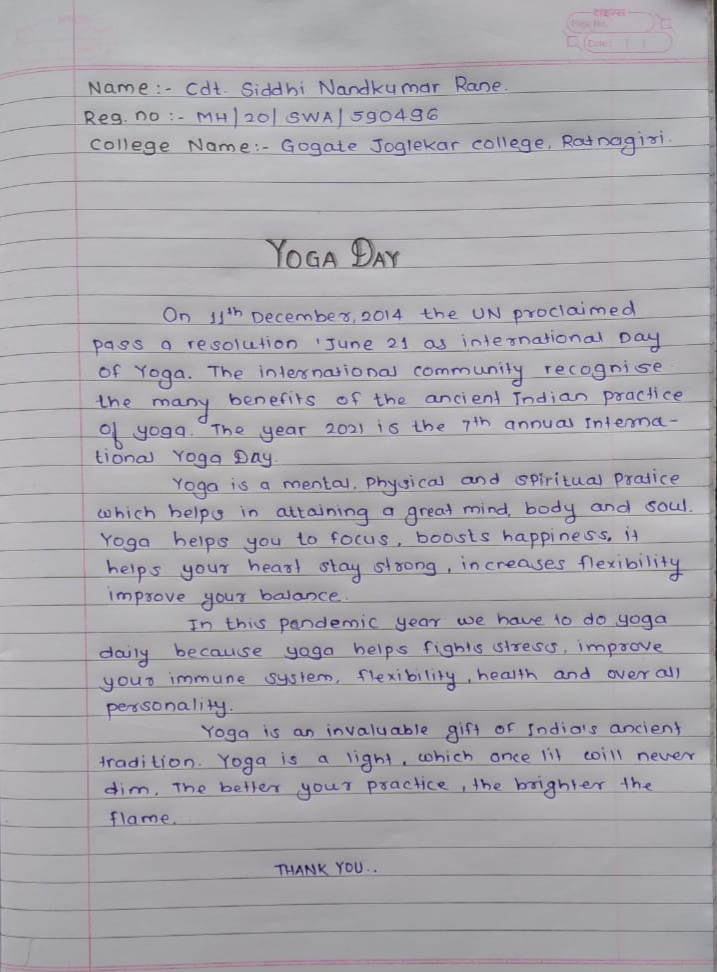 टाइम्स
Page No.
Date :
Name :- Cdt. Siddhi Nandkumar Rane.
Reg. no :- MH/20/SWA/590496
College Name:- Gogate Joglekar college, Ratnagiri.
YOGA DAY
On 11th December, 2014 the UN proclaimed
pass a resolution 'June 21 as international Day
of Yoga. The international community recognise
the many benefits of the ancient Indian practice
of yoga. The year 2021 is the 7th annual Interna-
tional Yoga Day.
Yoga is a mental, Physical and spiritual pratice
which helps in attaining a great mind, body and soul.
Yoga helps you to focus, boosts happiness, it
helps your heart stay strong, increases flexibility
improve your balance.
In this pandemic year we have to do yoga
daily because yaga helps fights stress, improve
your immune system, flexibility, health and over all
personality.
Yoga is an invaluable gift of India's ancient
tradition. Yoga is a light, which once lit will never
dim. The better your practice, the brighter the
flame.
THANK YOU..